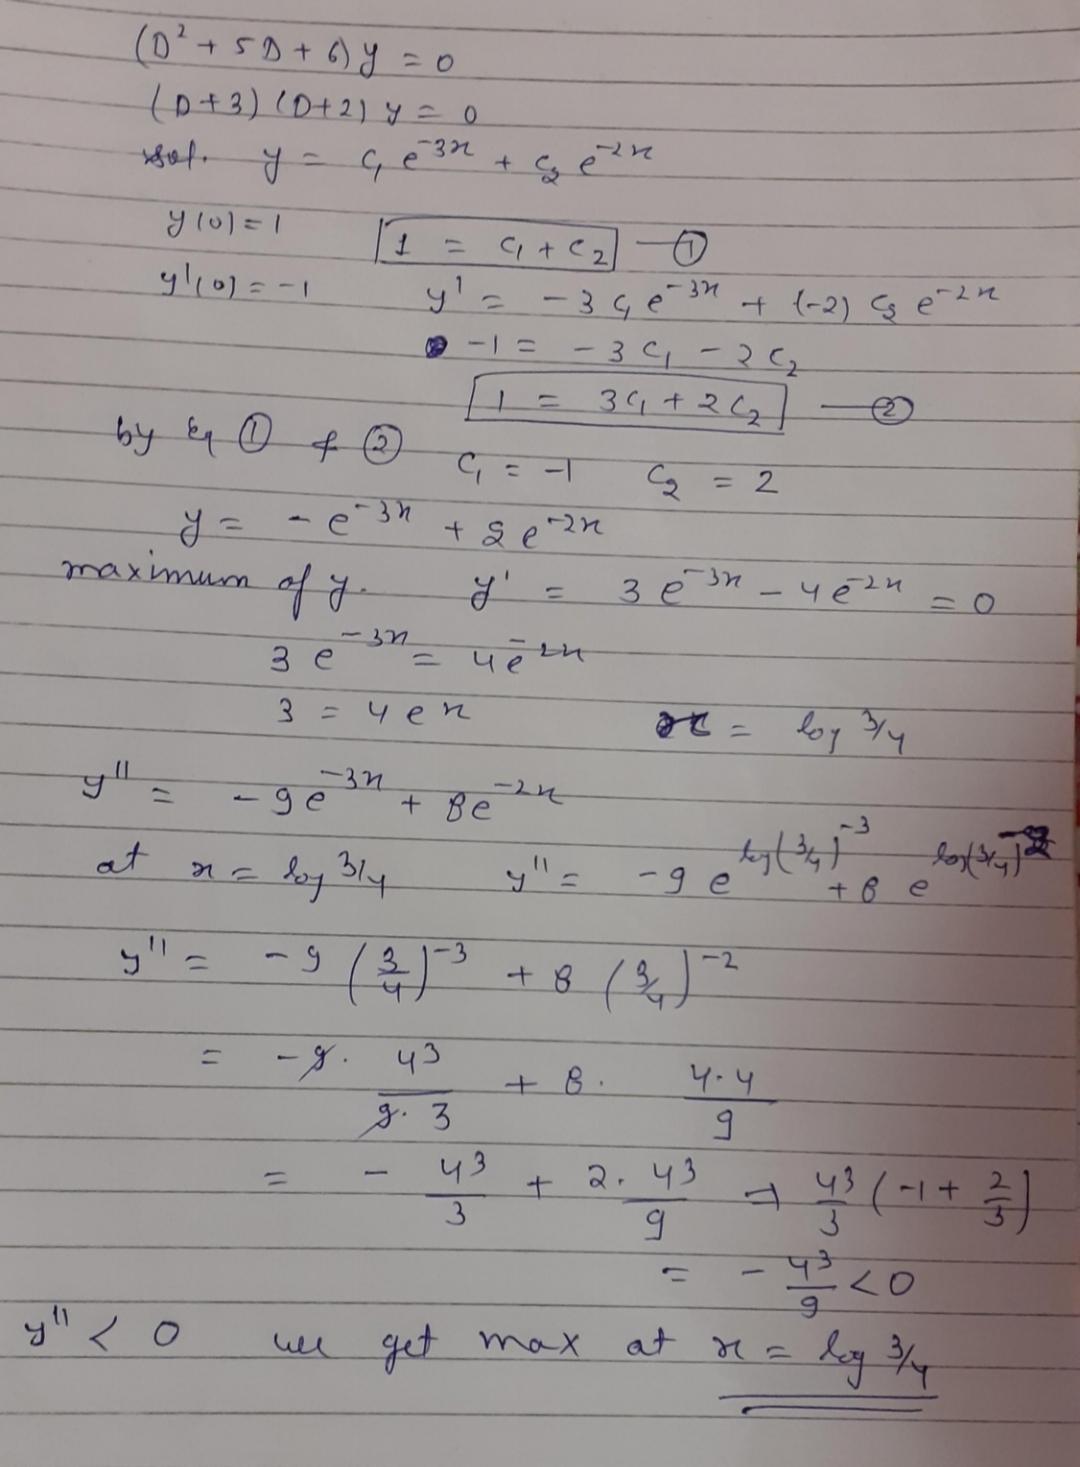 (D² + 5D + 6) y = 0
(D+3) (D+2) y = 0
sol. y = C₁ e⁻³ˣ + C₂ e⁻²ˣ
y(0) = 1 1 = C₁ + C₂ — ①
y'(0) = -1 y' = -3 C₁ e⁻³ˣ + (-2) C₂ e⁻²ˣ
-1 = -3C₁ - 2C₂
1 = 3C₁ + 2C₂ — ②
by Eq ① & ② C₁ = -1 C₂ = 2
y = -e⁻³ˣ + 2e⁻²ˣ
maximum of y. y' = 3e⁻³ˣ - 4e⁻²ˣ = 0
3e⁻³ˣ = 4e⁻²ˣ
3 = 4eˣ x = log 3/4
y'' = -9e⁻³ˣ + 8e⁻²ˣ
at x = log 3/4 y'' = -9 e^log(3/4)⁻³ + 8 e^log(3/4)⁻²
y'' = -9 (3/4)⁻³ + 8 (3/4)⁻²
= -9 · 4³/(9·3) + 8 · 4·4/9
= - 4³/3 + 2·4³/9 ⇒ 4³/3 (-1 + 2/3)
= - 4³/9 < 0
y'' < 0 we get max at x = log 3/4